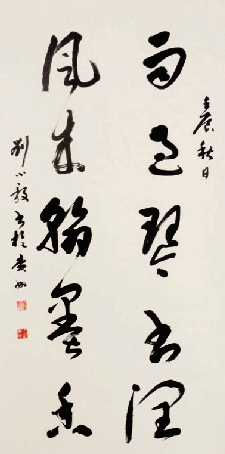 壬辰秋日
雨过琴书润
风来翰墨香
刘小毅书于贵州